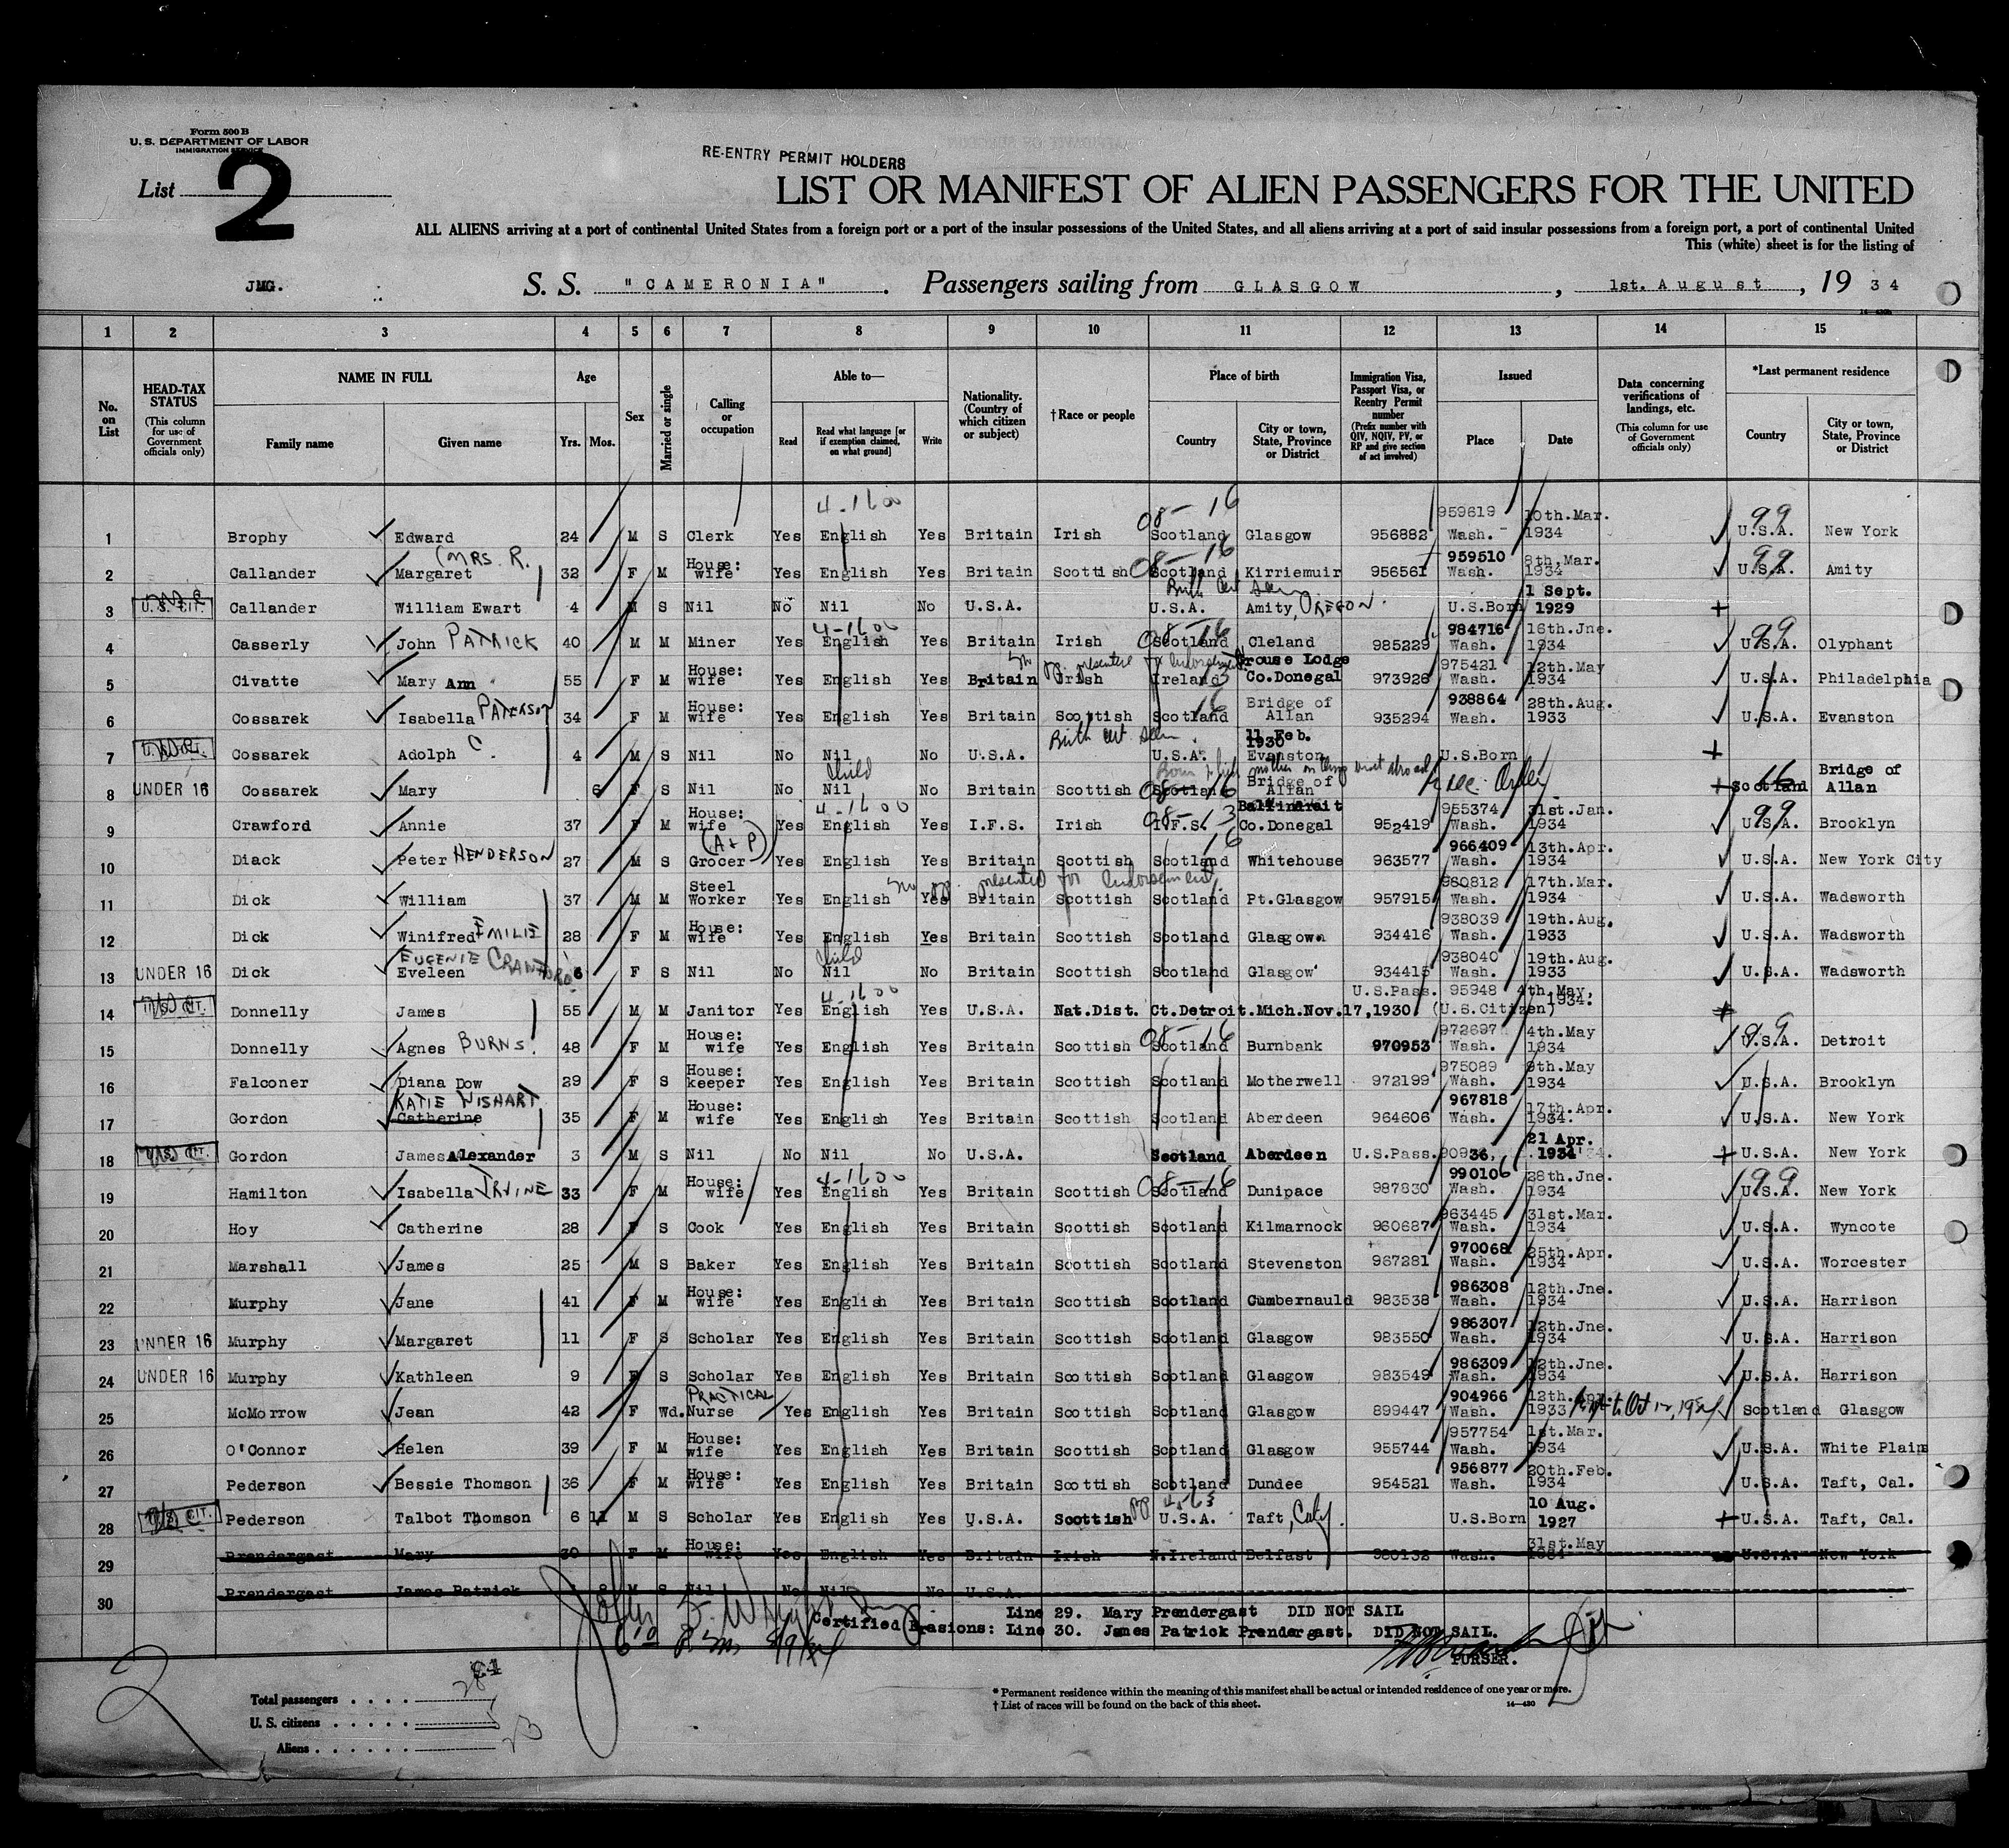 Form 500 B
U. S. DEPARTMENT OF LABOR
IMMIGRATION SERVICE
List 2
RE-ENTRY PERMIT HOLDERS
LIST OR MANIFEST OF ALIEN PASSENGERS FOR THE UNITED
ALL ALIENS arriving at a port of continental United States from a foreign port or a port of the insular possessions of the United States, and all aliens arriving at a port of said insular possessions from a foreign port, a port of continental United
This (white) sheet is for the listing of
JMG. S. S. "CAMERONIA". Passengers sailing from GLASGOW, 1st. August, 19 34
1 2 3 4 5 6 7 8 9 10 11 12 13 14 15
No. on List
HEAD-TAX STATUS (This column for use of Government officials only)
NAME IN FULL Family name Given name
Age Yrs. Mos.
Sex
Married or single
Calling or occupation
Able to— Read Read what language [or if exemption claimed, on what ground] Write
Nationality. (Country of which citizen or subject)
†Race or people
Place of birth Country City or town, State, Province or District
Immigration Visa, Passport Visa, or Reentry Permit number (Prefix number with QIV, NQIV, PV, or RP and give section of act involved)
Issued Place Date
Data concerning verifications of landings, etc. (This column for use of Government officials only)
*Last permanent residence Country City or town, State, Province or District
4-1600 08-16 99
1 Brophy Edward 24 M S Clerk Yes English Yes Britain Irish Scotland Glasgow 956882 959619 Wash. 10th.Mar. 1934 U.S.A. New York
2 Callander Margaret (MRS. R. 32 F M House: wife Yes English Yes Britain Scottish 08-16 Scotland Kirriemuir 956561 959510 Wash. 8th.Mar. 1934 99 U.S.A. Amity
3 U.S. CIT. Callander William Ewart 4 M S Nil No Nil No U.S.A. Birth Cert Seen U.S.A. Amity, OREGON. U.S.Born 1 Sept. 1929
4 Casserly John PATRICK 40 M M Miner Yes 4-1600 English Yes Britain Irish Scotland Cleland 985229 984716 Wash. 16th.Jne. 1934 99 U.S.A. Olyphant
5 Civatte Mary Ann 55 F M House: wife Yes English Yes Britain Irish Ireland Grouse Lodge Co.Donegal 973926 975421 Wash. 12th.May 1934 U.S.A. Philadelphia
6 Cossarek Isabella PATERSON 34 F M House: wife Yes English Yes Britain Scottish 16 Scotland Bridge of Allan 935294 938864 Wash. 28th.Aug. 1933 U.S.A. Evanston
7 Cossarek Adolph C 4 M S Nil No Nil No U.S.A. Birth Cert Seen. U.S.A. 11 Feb. 1930 Evanston U.S.Born
8 UNDER 16 Cossarek Mary 6 F S Nil No Child Nil No Britain Scottish Scotland Bridge of Allan Scotland Bridge of Allan
9 Crawford Annie 37 F M House: wife Yes 4-1600 English Yes I.F.S. Irish 08-13 I.F.S. Ballindrait Co.Donegal 952419 955374 Wash. 31st.Jan. 1934 99 U.S.A. Brooklyn
10 Diack Peter HENDERSON 27 M S (A+P) Grocer Yes English Yes Britain Scottish 16 Scotland Whitehouse 963577 966409 Wash. 13th.Apr. 1934 U.S.A. New York City
presented for endorsement
11 Dick William 37 M M Steel Worker Yes English Yes Britain Scottish Scotland Pt.Glasgow 957915 960812 Wash. 17th.Mar. 1934 U.S.A. Wadsworth
12 Dick Winifred EMILIE 28 F M House: wife Yes English Yes Britain Scottish Scotland Glasgow. 934416 938039 Wash. 19th.Aug. 1933 U.S.A. Wadsworth
13 UNDER 16 Dick Eveleen EUGENIE CRAWFORD 6 F S Nil No Child Nil No Britain Scottish Scotland Glasgow 934415 938040 Wash. 19th.Aug. 1933 U.S.A. Wadsworth
14 Donnelly James 55 M M Janitor Yes 4-1600 English Yes U.S.A. Nat.Dist. Ct.Detroit.Mich.Nov.17,1930. U.S.Pass. 95948 4th.May, 1934. (U.S.Citizen)
15 Donnelly Agnes BURNS. 48 F M House: wife Yes English Yes Britain Scottish 08-16 Scotland Burnbank 970953 972697 Wash. 4th.May 1934 U.S.A. Detroit
16 Falconer Diana Dow 29 F S House: keeper Yes English Yes Britain Scottish Scotland Motherwell 972199 975089 Wash. 9th.May 1934 U.S.A. Brooklyn
17 Gordon KATIE WISHART Catherine 35 F M House: wife Yes English Yes Britain Scottish Scotland Aberdeen 964606 967818 Wash. 17th.Apr. 1934. U.S.A. New York
18 Gordon James Alexander 3 M S Nil No Nil No U.S.A. Scotland Aberdeen U.S.Pass. 90936, 21 Apr. 1934 U.S.A. New York
19 Hamilton Isabella IRVINE 33 F M House: wife Yes 4-1600 English Yes Britain Scottish 08-16 Scotland Dunipace 987830 990106 Wash. 28th.Jne. 1934 99 U.S.A. New York
20 Hoy Catherine 28 F S Cook Yes English Yes Britain Scottish Scotland Kilmarnock 960687 963445 Wash. 31st.Mar. 1934 U.S.A. Wyncote
21 Marshall James 25 M S Baker Yes English Yes Britain Scottish Scotland Stevenston 967281 970068 Wash. 25th.Apr. 1934 U.S.A. Worcester
22 Murphy Jane 41 F M House: wife Yes English Yes Britain Scottish Scotland Cumbernauld 983538 986308 Wash. 12th.Jne. 1934 U.S.A. Harrison
23 UNDER 16 Murphy Margaret 11 F S Scholar Yes English Yes Britain Scottish Scotland Glasgow 983550 986307 Wash. 12th.Jne. 1934 U.S.A. Harrison
24 UNDER 16 Murphy Kathleen 9 F S Scholar Yes English Yes Britain Scottish Scotland Glasgow 983549 986309 Wash. 12th.Jne. 1934 U.S.A. Harrison
25 McMorrow Jean 42 F Wd. PRACTICAL Nurse Yes English Yes Britain Scottish Scotland Glasgow 899447 904966 Wash. 12th.Apr. 1933 Scotland Glasgow
26 O'Connor Helen 39 F M House: wife Yes English Yes Britain Scottish Scotland Glasgow 955744 957754 Wash. 1st.Mar. 1934 U.S.A. White Plains
27 Pederson Bessie Thomson 36 F M House: wife Yes English Yes Britain Scottish Scotland Dundee 954521 956877 Wash. 20th.Feb. 1934 U.S.A. Taft, Cal.
28 Pederson Talbot Thomson 6 11 M S Scholar Yes English Yes U.S.A. Scottish U.S.A. Taft, Calif. U.S.Born 10 Aug. 1927 U.S.A. Taft, Cal.
29 Prendergast Mary 30 F M House: wife Yes English Yes Britain Irish N.Ireland Belfast 980132 Wash. 31st.May 1934 U.S.A. New York
30 Prendergast James Patrick 8 M S Nil No Nil No U.S.A.
Certified Erasions: Line 29. Mary Prendergast DID NOT SAIL
Line 30. James Patrick Prendergast. DID NOT SAIL.
PURSER.
2
Total passengers . . . .
U. S. citizens . . . . .
Aliens . . . . . . 23
* Permanent residence within the meaning of this manifest shall be actual or intended residence of one year or more.
† List of races will be found on the back of this sheet.
14—430